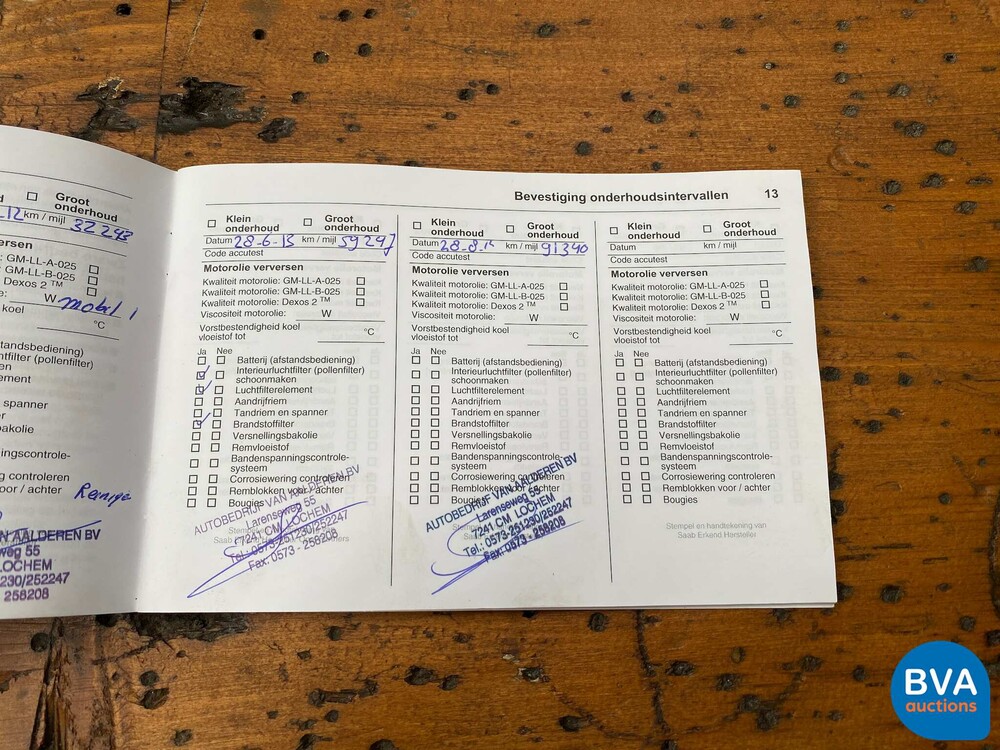 Groot
onderhoud
12 km / mijl 32 243
ersen
GM-LL-A-025
GM-LL-B-025
Dexos 2 ™
W mobil 1
koel
°C
bediening)
filter (pollenfilter)
en
ement
spanner
akolie
ningscontrole-
g controleren
voor / achter
N AALDEREN BV
weg 55
LOCHEM
230/252247
258208
Bevestiging onderhoudsintervallen 13
Klein onderhoud Groot onderhoud
Datum 28-6-13 km / mijl 59247
Code accutest
Motorolie verversen
Kwaliteit motorolie: GM-LL-A-025
Kwaliteit motorolie: GM-LL-B-025
Kwaliteit motorolie: Dexos 2 ™
Viscositeit motorolie: W
Vorstbestendigheid koel
vloeistof tot °C
Ja Nee
Batterij (afstandsbediening)
Interieurluchtfilter (pollenfilter)
schoonmaken
Luchtfilterelement
Aandrijfriem
Tandriem en spanner
Brandstoffilter
Versnellingsbakolie
Remvloeistof
Bandenspanningscontrole-
systeem
Corrosiewering controleren
Remblokken voor / achter
Bougies
AUTOBEDRIJF VAN AALDEREN BV
Larenseweg 55
7241 CM LOCHEM
Tel.: 0573-251230/252247
Fax: 0573 - 258208
Klein onderhoud Groot onderhoud
Datum 28-8- km / mijl 91340
Code accutest
Motorolie verversen
Kwaliteit motorolie: GM-LL-A-025
Kwaliteit motorolie: GM-LL-B-025
Kwaliteit motorolie: Dexos 2 ™
Viscositeit motorolie: W
Vorstbestendigheid koel
vloeistof tot °C
Ja Nee
Batterij (afstandsbediening)
Interieurluchtfilter (pollenfilter)
schoonmaken
Luchtfilterelement
Aandrijfriem
Tandriem en spanner
Brandstoffilter
Versnellingsbakolie
Remvloeistof
Bandenspanningscontrole-
systeem
Corrosiewering controleren
Remblokken voor / achter
Bougies
AUTOBEDRIJF VAN AALDEREN BV
Larenseweg 55
7241 CM LOCHEM
Tel.: 0573-251230/252247
Fax: 0573 - 258208
Klein onderhoud Groot onderhoud
Datum km / mijl
Code accutest
Motorolie verversen
Kwaliteit motorolie: GM-LL-A-025
Kwaliteit motorolie: GM-LL-B-025
Kwaliteit motorolie: Dexos 2 ™
Viscositeit motorolie: W
Vorstbestendigheid koel
vloeistof tot °C
Ja Nee
Batterij (afstandsbediening)
Interieurluchtfilter (pollenfilter)
schoonmaken
Luchtfilterelement
Aandrijfriem
Tandriem en spanner
Brandstoffilter
Versnellingsbakolie
Remvloeistof
Bandenspanningscontrole-
systeem
Corrosiewering controleren
Remblokken voor / achter
Bougies
Stempel en handtekening van
Saab Erkend Hersteller
BVA
auctions